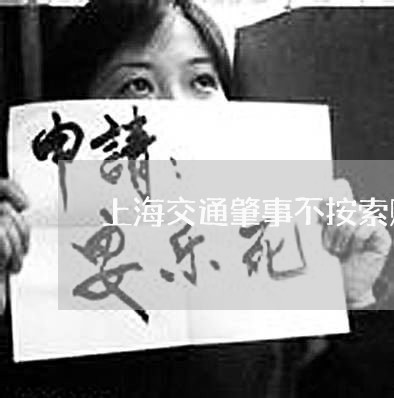 申請：
上海交通肇事不按索
安乐死